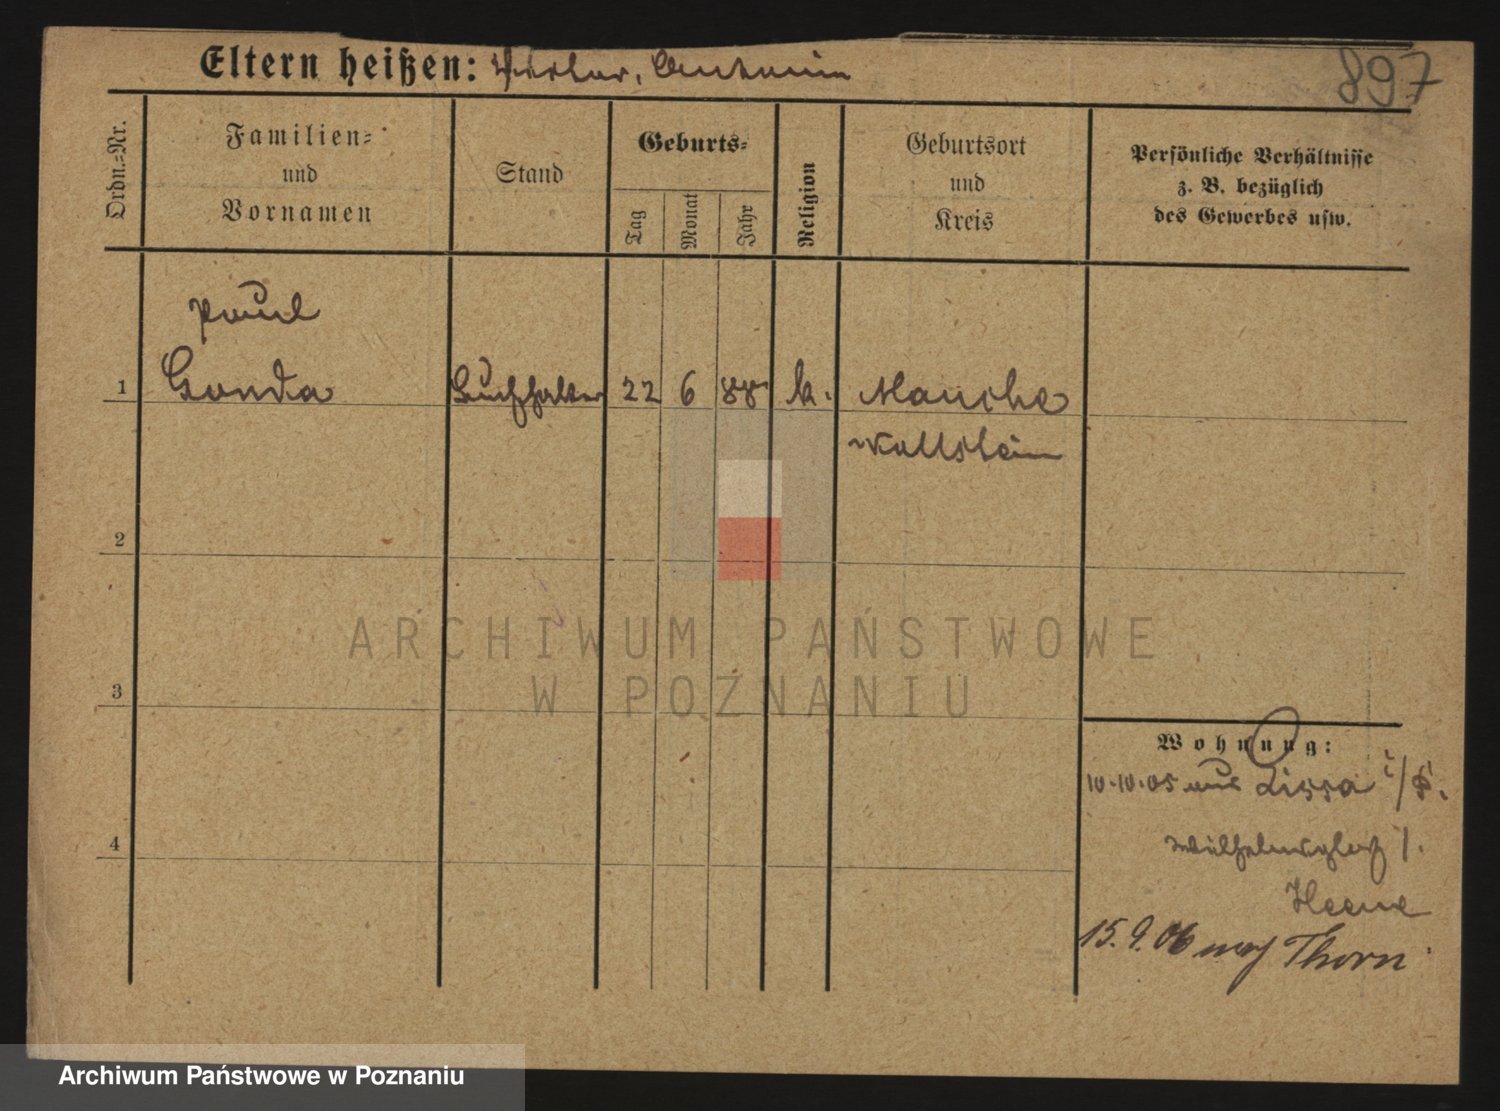 897
Eltern heißen: Antonin
Ordn.-Nr.
Familien-
und
Vornamen
Stand
Geburts-
Tag
Monat
Jahr
Religion
Geburtsort
und
Kreis
Persönliche Verhältnisse
z. B. bezüglich
des Gewerbes usw.
Paul
1 Gonda Buchhalter 22 6 88. k. Mauche
Wollstein
2
3
4
Wohnung:
10.10.05 aus Lissa i/P.
Wilhelmsplatz 1.
15.9.06 nach Thorn
ARCHIWUM PAŃSTWOWE
W POZNANIU
Archiwum Państwowe w Poznaniu